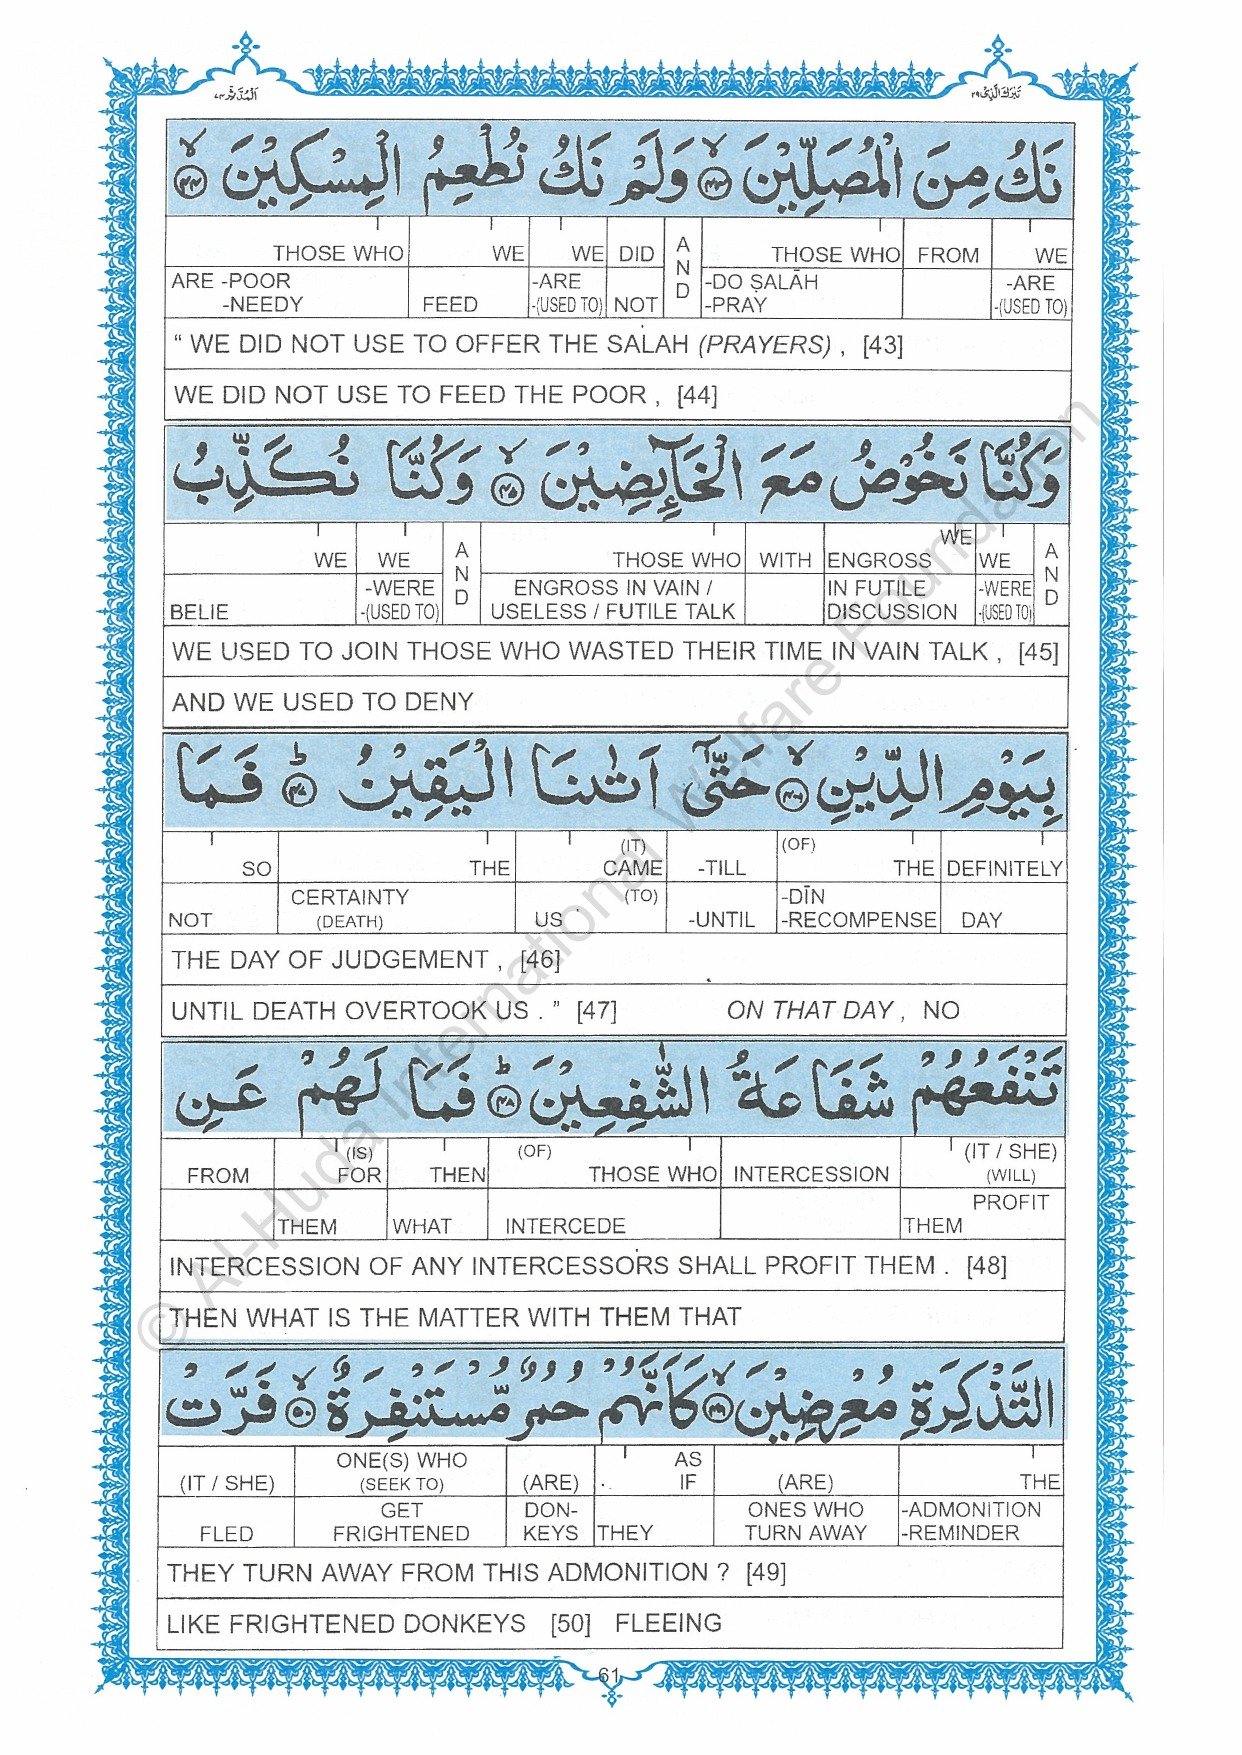 اَلْمُدَّثِّر ٧٤
تَبٰرَكَ الَّذِىْ ٢٩
نَكُ مِنَ الْمُصَلِّيْنَ ﴿٤٣﴾ۙ وَلَمْ نَكُ نُطْعِمُ الْمِسْكِيْنَ ﴿٤٤﴾ۙ
THOSE WHO WE WE DID AND THOSE WHO FROM WE
ARE -POOR -NEEDY FEED -ARE -(USED TO) NOT -DO ṢALĀH -PRAY -ARE -(USED TO)
“ WE DID NOT USE TO OFFER THE SALAH (PRAYERS) , [43]
WE DID NOT USE TO FEED THE POOR , [44]
وَكُنَّا نَخُوْضُ مَعَ الْخَآىِٕضِيْنَ ﴿٤٥﴾ۙ وَكُنَّا نُكَذِّبُ
WE WE AND THOSE WHO WITH WE ENGROSS WE AND
BELIE -WERE -(USED TO) ENGROSS IN VAIN / USELESS / FUTILE TALK IN FUTILE DISCUSSION -WERE -(USED TO)
WE USED TO JOIN THOSE WHO WASTED THEIR TIME IN VAIN TALK , [45]
AND WE USED TO DENY
بِيَوْمِ الدِّيْنِ ﴿٤٦﴾ۙ حَتّٰىٓ اَتٰىنَا الْيَقِيْنُ ﴿٤٧﴾ؕ فَمَا
SO THE (IT) CAME -TILL (OF) THE DEFINITELY
NOT CERTAINTY (DEATH) (TO) US -UNTIL -DĪN -RECOMPENSE DAY
THE DAY OF JUDGEMENT , [46]
UNTIL DEATH OVERTOOK US . ” [47] ON THAT DAY , NO
تَنْفَعُهُمْ شَفَاعَةُ الشّٰفِعِيْنَ ﴿٤٨﴾ؕ فَمَا لَهُمْ عَنِ
FROM (IS) FOR THEN (OF) THOSE WHO INTERCESSION (IT / SHE) (WILL)
THEM WHAT INTERCEDE PROFIT THEM
INTERCESSION OF ANY INTERCESSORS SHALL PROFIT THEM . [48]
THEN WHAT IS THE MATTER WITH THEM THAT
التَّذْكِرَةِ مُعْرِضِيْنَ ﴿٤٩﴾ۙ كَاَنَّهُمْ حُمُرٌ مُّسْتَنْفِرَةٌ ﴿٥٠﴾ۙ فَرَّتْ
(IT / SHE) ONE(S) WHO (SEEK TO) (ARE) AS IF (ARE) THE
FLED GET FRIGHTENED DON-KEYS THEY ONES WHO TURN AWAY -ADMONITION -REMINDER
THEY TURN AWAY FROM THIS ADMONITION ? [49]
LIKE FRIGHTENED DONKEYS [50] FLEEING
61
© Al-Huda International Welfare Foundation